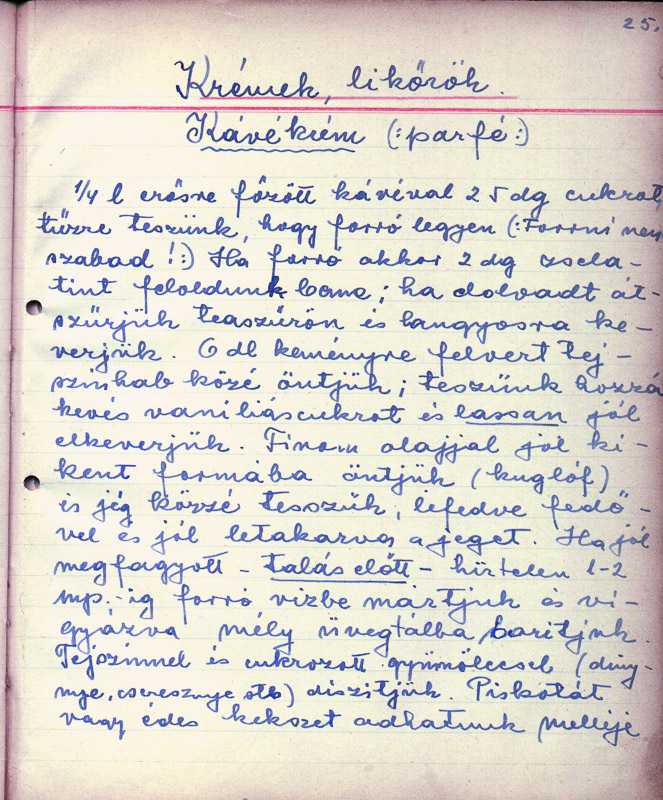 25.
Krémek, likőrök.
Kávékrém (:parfé:)
1/4 l erősre főzött kávéval 25 dg cukrot,
tűzre teszünk, hogy forró legyen (:Forrni nem
szabad!:) Ha forró akkor 2 dg zsela-
tint feloldunk benne; ha elolvadt át-
szűrjük teaszűrőn és langyosra ke-
verjük. 6 dl keményre felvert tej-
szinhab közé öntjük; teszünk hozzá
kevés vaniliáscukrot és lassan jól
elkeverjük. Finom olajjal jól ki-
kent formába öntjük (kuglóf)
és jég közzé tesszük, lefedve fedő-
vel és jól letakarva a jeget. Ha jól
megfagyott - talás előtt - hirtelen 1-2
mp.-ig forró vizbe mártjuk és vi-
gyázva mély üvegtálba boritjuk.
Tejszinnel és cukrozott gyümölccsel (diny-
nye, cseresznye stb) diszitjük. Piskótát
vagy édes kekszet adhatunk melléje